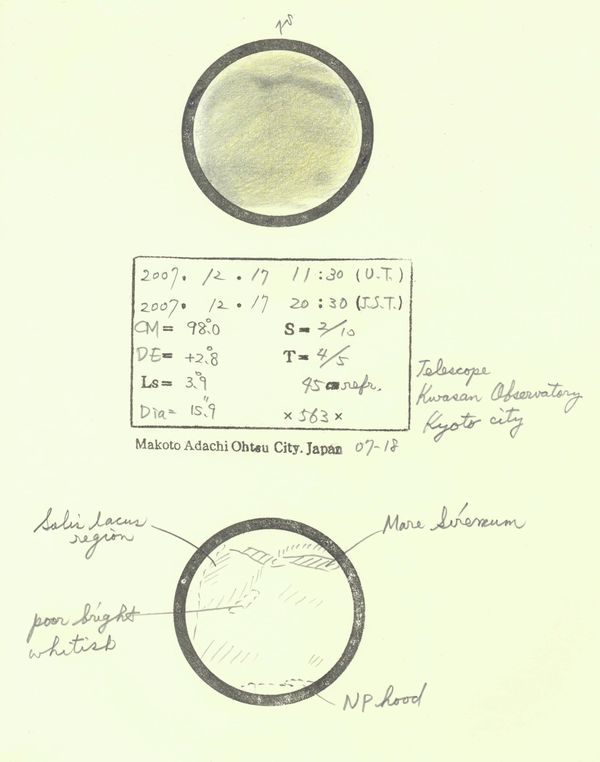 2007. 12. 17 11:30 (U.T.)
2007. 12. 17 20:30 (J.S.T.)
CM= 98.°0 S= 2/10
DE= +2.°8 T= 4/5
Ls= 3.°9 45cm refr.
Dia= 15."9 ×563×
Telescope
Kwasan Observatory
Kyoto city
Makoto Adachi Ohtsu City. Japan 07-18
Solis Lacus
region
Mare Sirenum
poor bright
whitish
NP hood